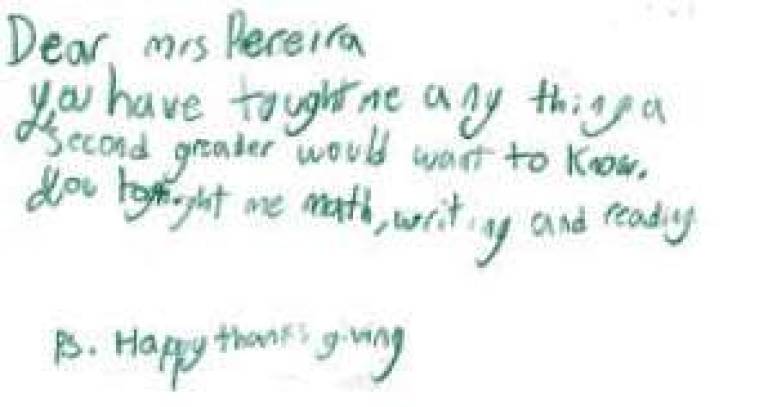 Dear mrs Pereira
you have tought me any thing a
second greader would want to know.
you tought me math, writing and reading
Ps. Happy thanks giving